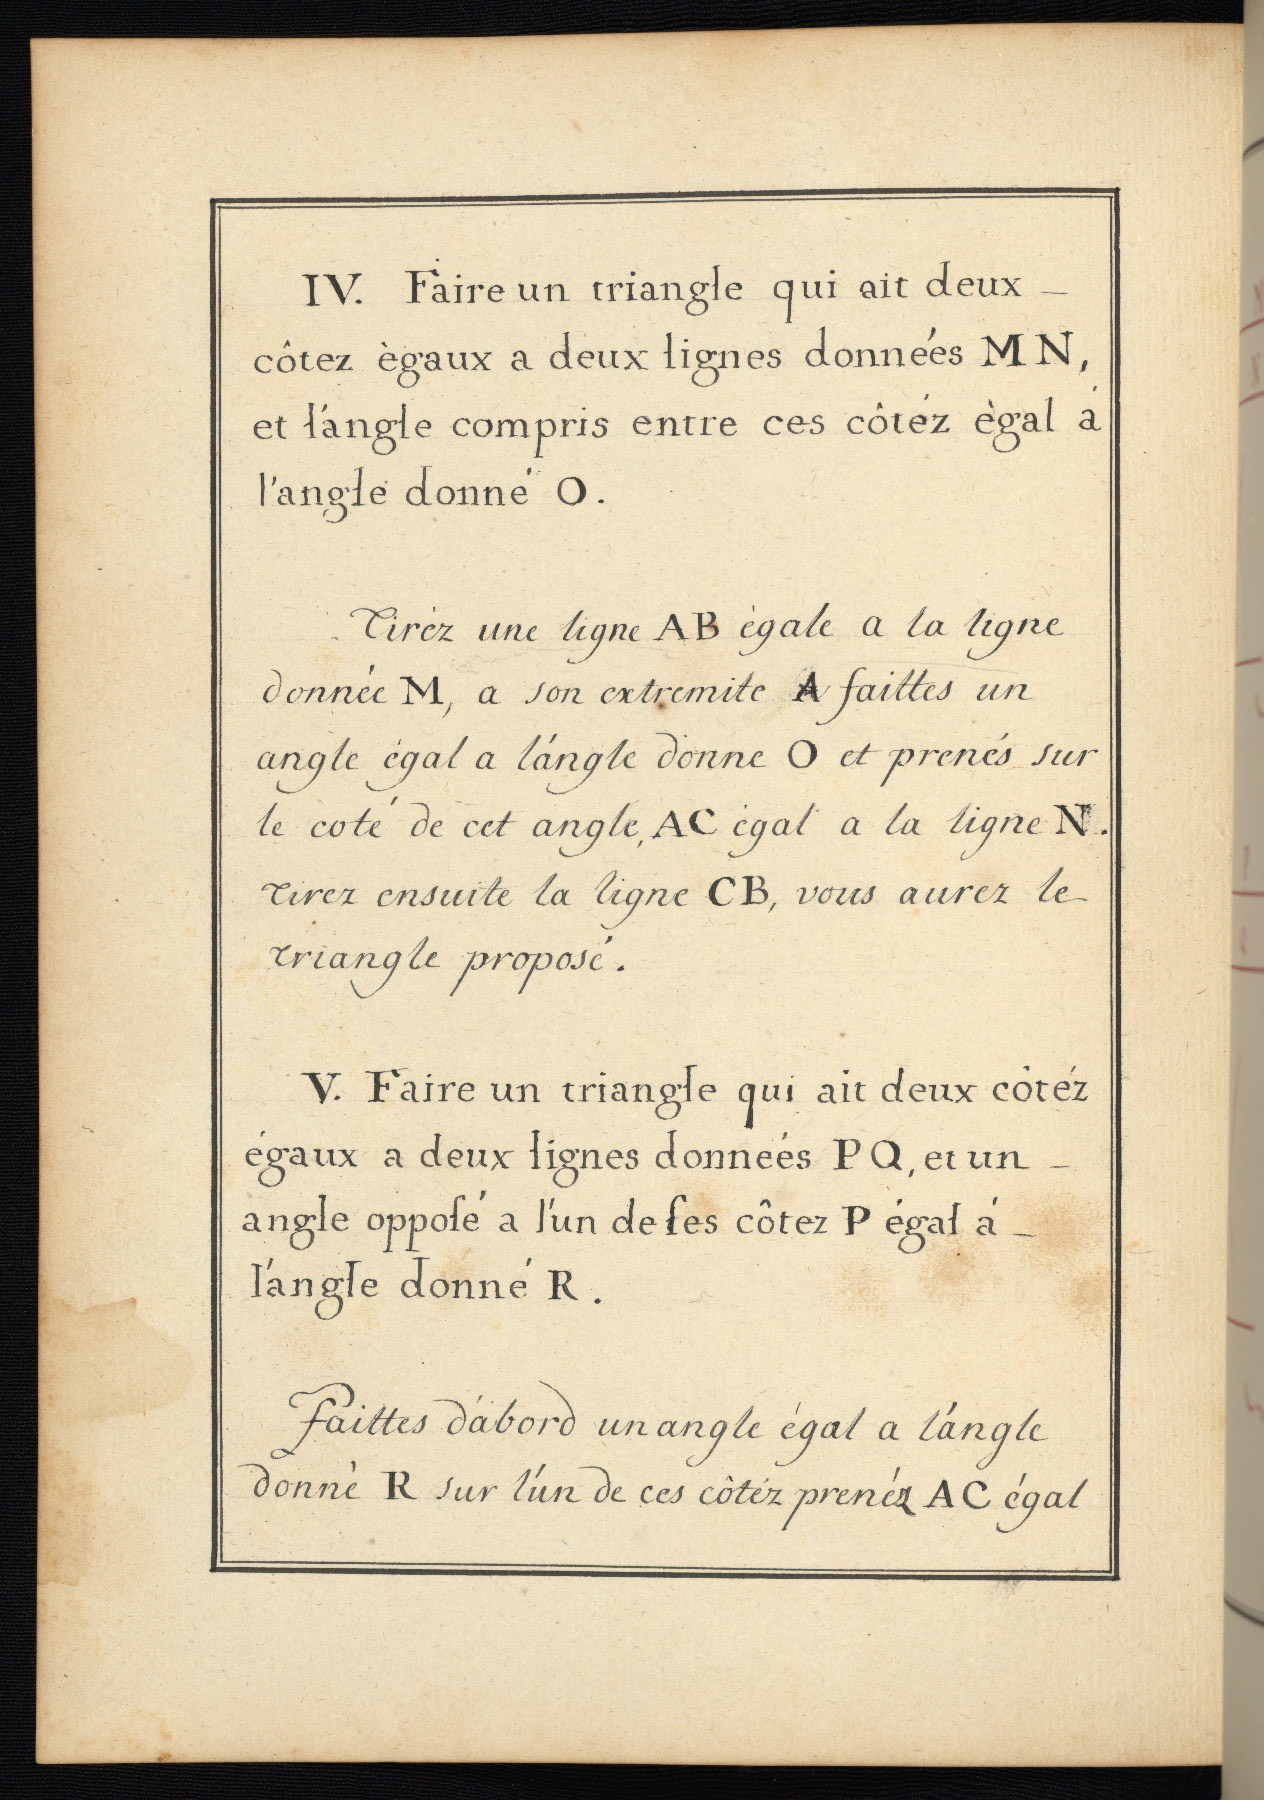 IV. Faire un triangle qui ait deux _
côtez ègaux a deux lignes données M N,
et l'angle compris entre ces côtéz ègal à
l'angle donné O.
Tiréz une ligne AB égale a la ligne
donnée M, a son extremite A faittes un
angle égal a l'angle donne O et prenés sur
le coté de cet angle, AC égal a la ligne N.
Tirez ensuite la ligne CB, vous aurez le
triangle proposé.
V. Faire un triangle qui ait deux côtéz
égaux a deux lignes données P Q, et un _
angle opposé a l'un de ſes côtez P égal á _
l'angle donné R.
Faittes d'abord un angle égal a l'angle
donné R sur l'un de ces côtéz prenéz AC égal